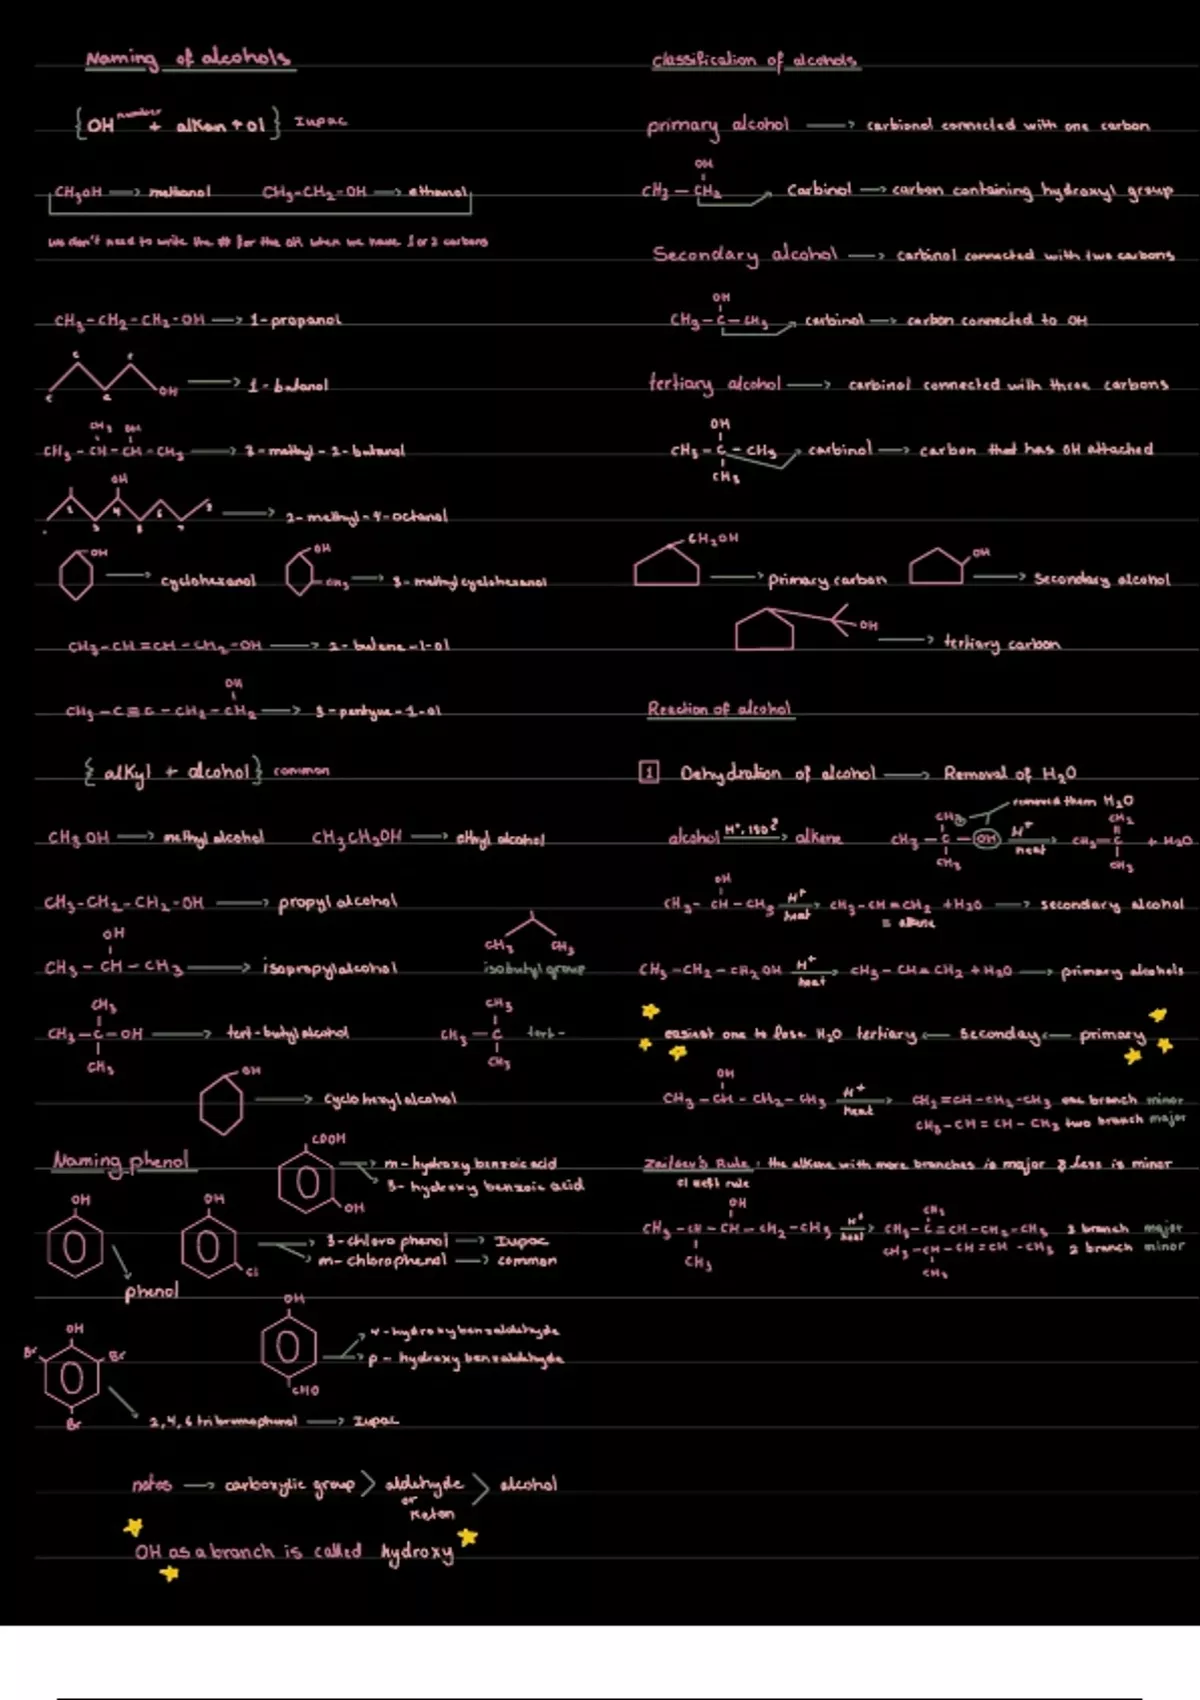 Naming of alcohols
{OH number + alkan + ol} Iupac
CH3OH → methanol CH3-CH2-OH → ethanol
we don't need to write the # for the OH when we have 1 or 2 carbons
CH3-CH2-CH2-OH → 1-propanol
OH → 1-butanol
CH3 OH
CH3-CH-CH-CH3 → 3-methyl-2-butanol
OH
→ 2-methyl-4-octanol
OH → cyclohexanol
OH
CH3 → 3-methylcyclohexanol
CH3-CH=CH-CH2-OH → 2-butene-1-ol
OH
CH3-C≡C-CH2-CH2 → 3-pentyne-1-ol
{alkyl + alcohol} common
CH3OH → methyl alcohol CH3CH2OH → ethyl alcohol
CH3-CH2-CH2-OH → propyl alcohol
OH
CH3-CH-CH3 → isopropylalcohol
CH3 CH3
isobutyl group
CH3
CH3-C-OH → tert-butylalcohol
CH3
CH3
CH3-C tert-
CH3
OH
→ cyclohexylalcohol
Naming phenol
COOH
OH
→ m-hydroxy benzoic acid
→ 3-hydroxy benzoic acid
OH
phenol
OH
Cl
→ 3-chloro phenol → Iupac
→ m-chlorophenol → common
OH
CHO
→ 4-hydroxybenzaldehyde
→ p-hydroxy benzaldehyde
OH
Br Br
Br
2,4,6 tribromophenol → Iupac
notes → carboxylic group > aldehyde or Keton > alcohol
OH as a branch is called hydroxy
Classification of alcohols
primary alcohol → carbionol connected with one carbon
OH
CH3-CH2 Carbinol → carbon containing hydroxyl group
Secondary alcohol → carbinol connected with two carbons
OH
CH3-C-CH3 carbinol → carbon connected to OH
tertiary alcohol → carbinol connected with three carbons
OH
CH3-C-CH3 carbinol → carbon that has OH attached
CH3
CH2OH → primary carbon
OH → secondary alcohol
OH → tertiary carbon
Reaction of alcohol
1 Dehydration of alcohol → Removal of H2O
removed them H2O
alcohol → alkene
CH3
CH3-C-OH H+ heat → CH2=C + H2O
CH3 CH3
OH
CH3-CH-CH3 H+ heat → CH3-CH=CH2 + H2O → secondary alcohol
= alkene
CH3-CH2-CH2OH H+ heat → CH3-CH=CH2 + H2O → primary alcohols
easiest one to lose H2O tertiary ← seconday ← primary
OH
CH3-CH-CH2-CH3 H+ heat → CH2=CH-CH2-CH3 one branch minor
CH3-CH=CH-CH3 two branch major
Zaitsev's Rule: the alkene with more branches is major & less is minor
OH
CH3-CH-CH-CH2-CH3 H+ heat → CH3-C=CH-CH2-CH3 3 branch major
CH3
CH3-CH-CH=CH-CH3 2 branch minor
CH3
CH3